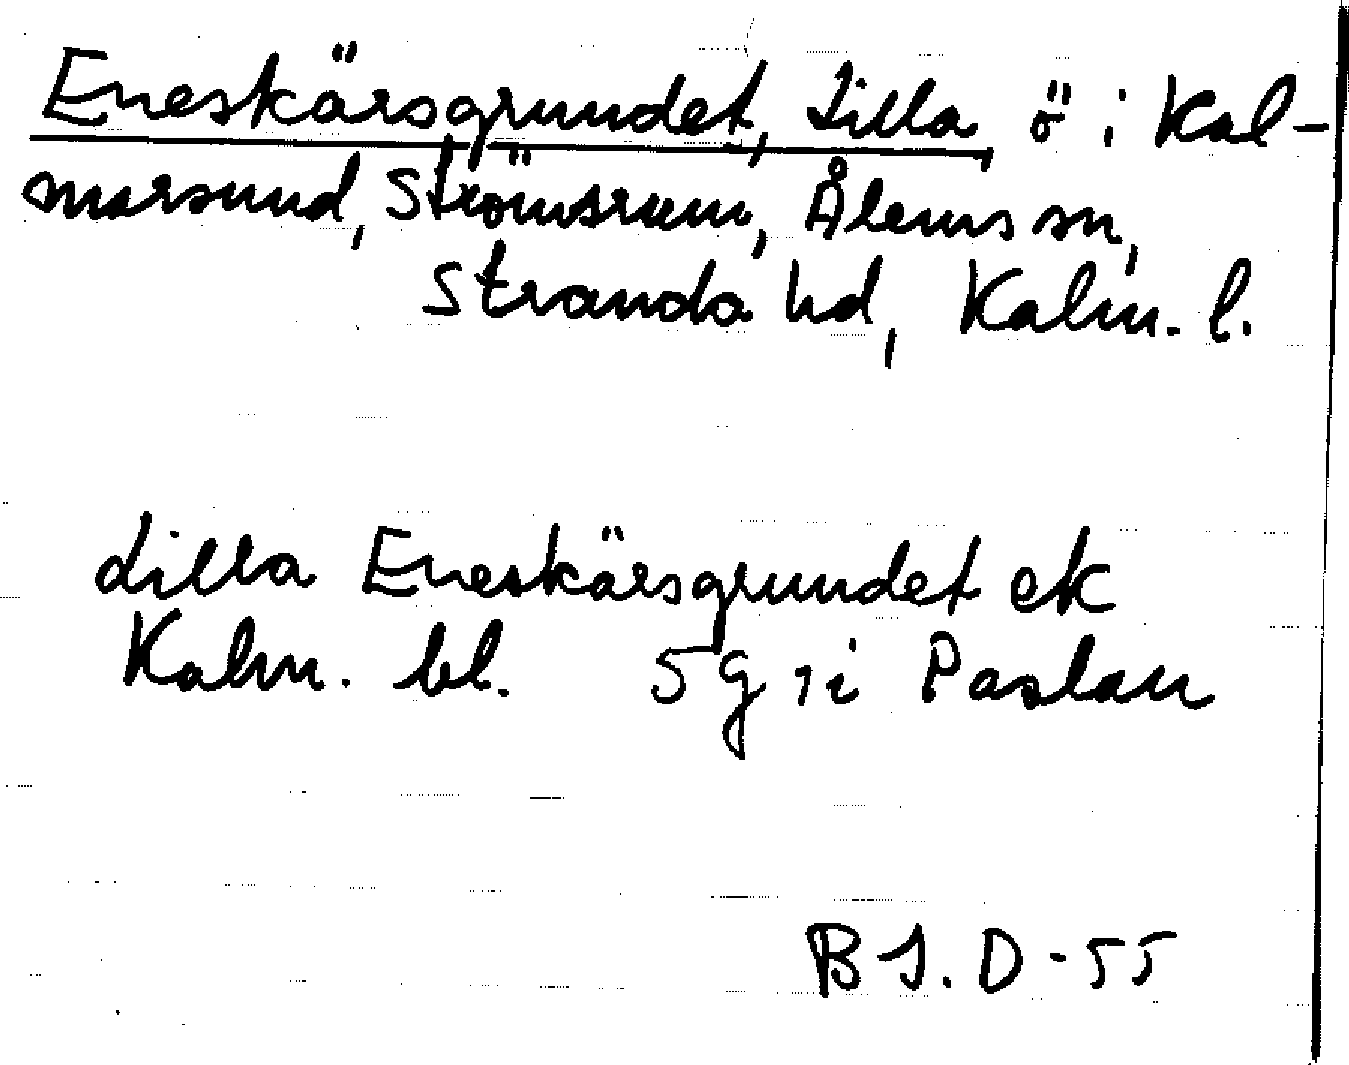 Eneskärsgrundet, Lilla, ö i Kal-
marsund, Strömsrum, Ålems sn,
Stranda hd, Kalm. l.
Lilla Eneskärsgrundet ek
Kalm. bl. 5 g 7 i Paslau
B J. D - 55